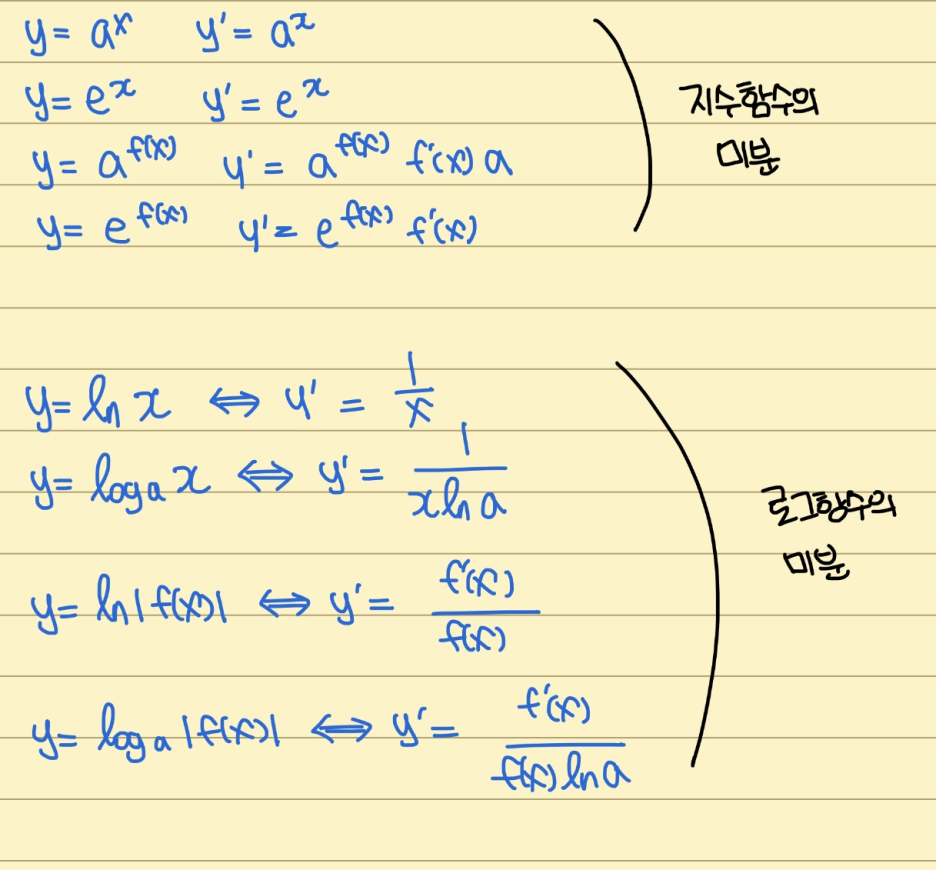 y = aˣ y' = aˣ
y = eˣ y' = eˣ
y = a^f(x) y' = a^f(x) f'(x) a
y = e^f(x) y' = e^f(x) f'(x)
지수함수의
미분
y = ln x ⇔ y' = 1/x
y = logₐ x ⇔ y' = 1/(x ln a)
y = ln |f(x)| ⇔ y' = f'(x)/f(x)
y = logₐ |f(x)| ⇔ y' = f'(x)/(f(x) ln a)
로그함수의
미분